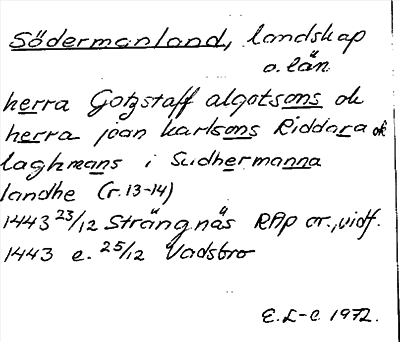 Södermanland, landskap
o. län
herra Gotzstaff algotsons ok
herra joan karlsons Riddara ok
laghmans i Sudhermanna
landhe (r. 13-14)
1443 23/12 Strängnäs RAp or., vidf.
1443 e. 25/12 Vadsbro
E. L-C 1972.